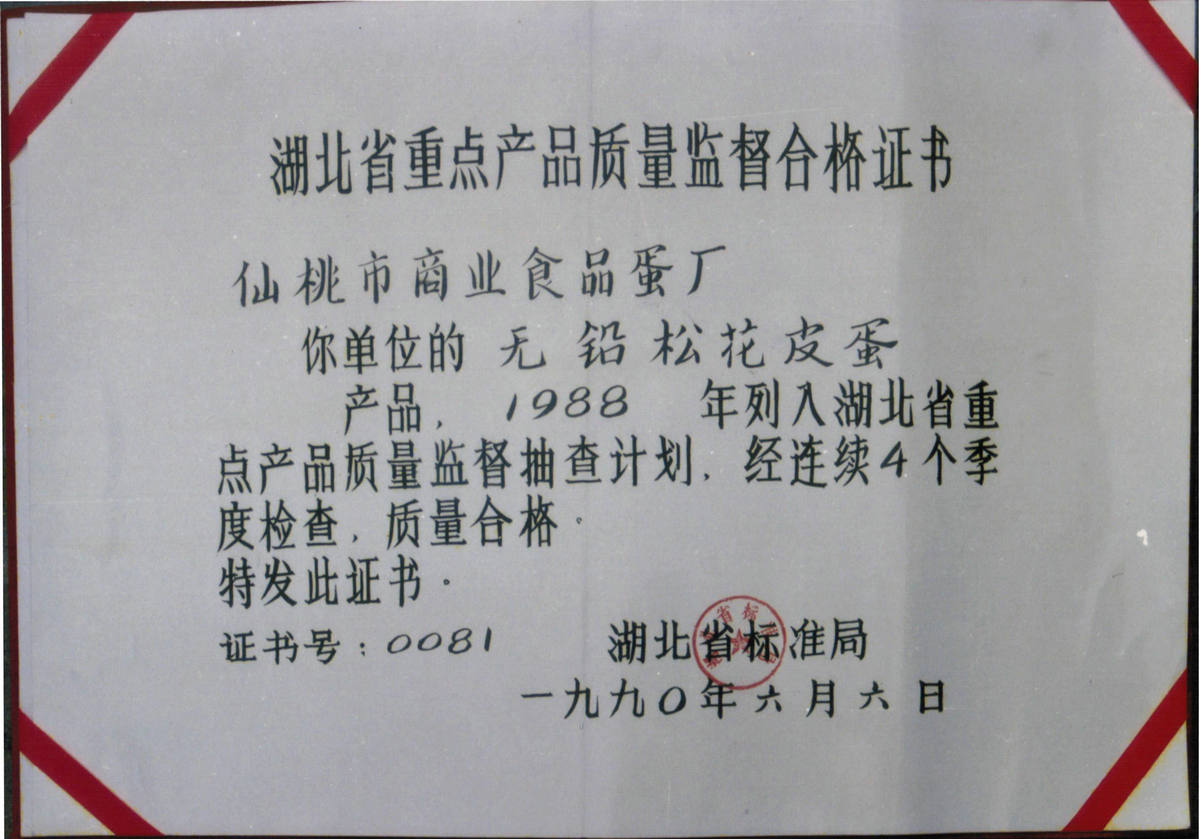 湖北省重点产品质量监督合格证书
仙桃市商业食品蛋厂
你单位的 无铅松花皮蛋
产品，1988 年列入湖北省重
点产品质量监督抽查计划，经连续4个季
度检查，质量合格。
特发此证书。
证书号：0081 湖北省标准局
一九九〇年六月六日